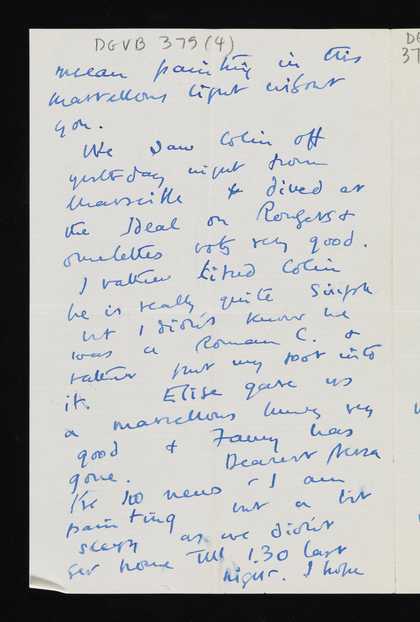 DGVB 379 (4)
mean painting in this
marvellous light without
you.
We saw Colin off
yesterday night from
Marseille & dined at
the Ideal on Rougets &
omelettes very good.
I rather liked Colin
he is really quite simple
but I didn't know he
was a Roman C. &
rather put my foot into
it. Elise gave us
a marvellous lunch very
good & Fanny has
gone. Dearest
I've no news - I am
painting but a bit
sleepy as we didn't
get home till 1.30 last
night. I hope
DG
37